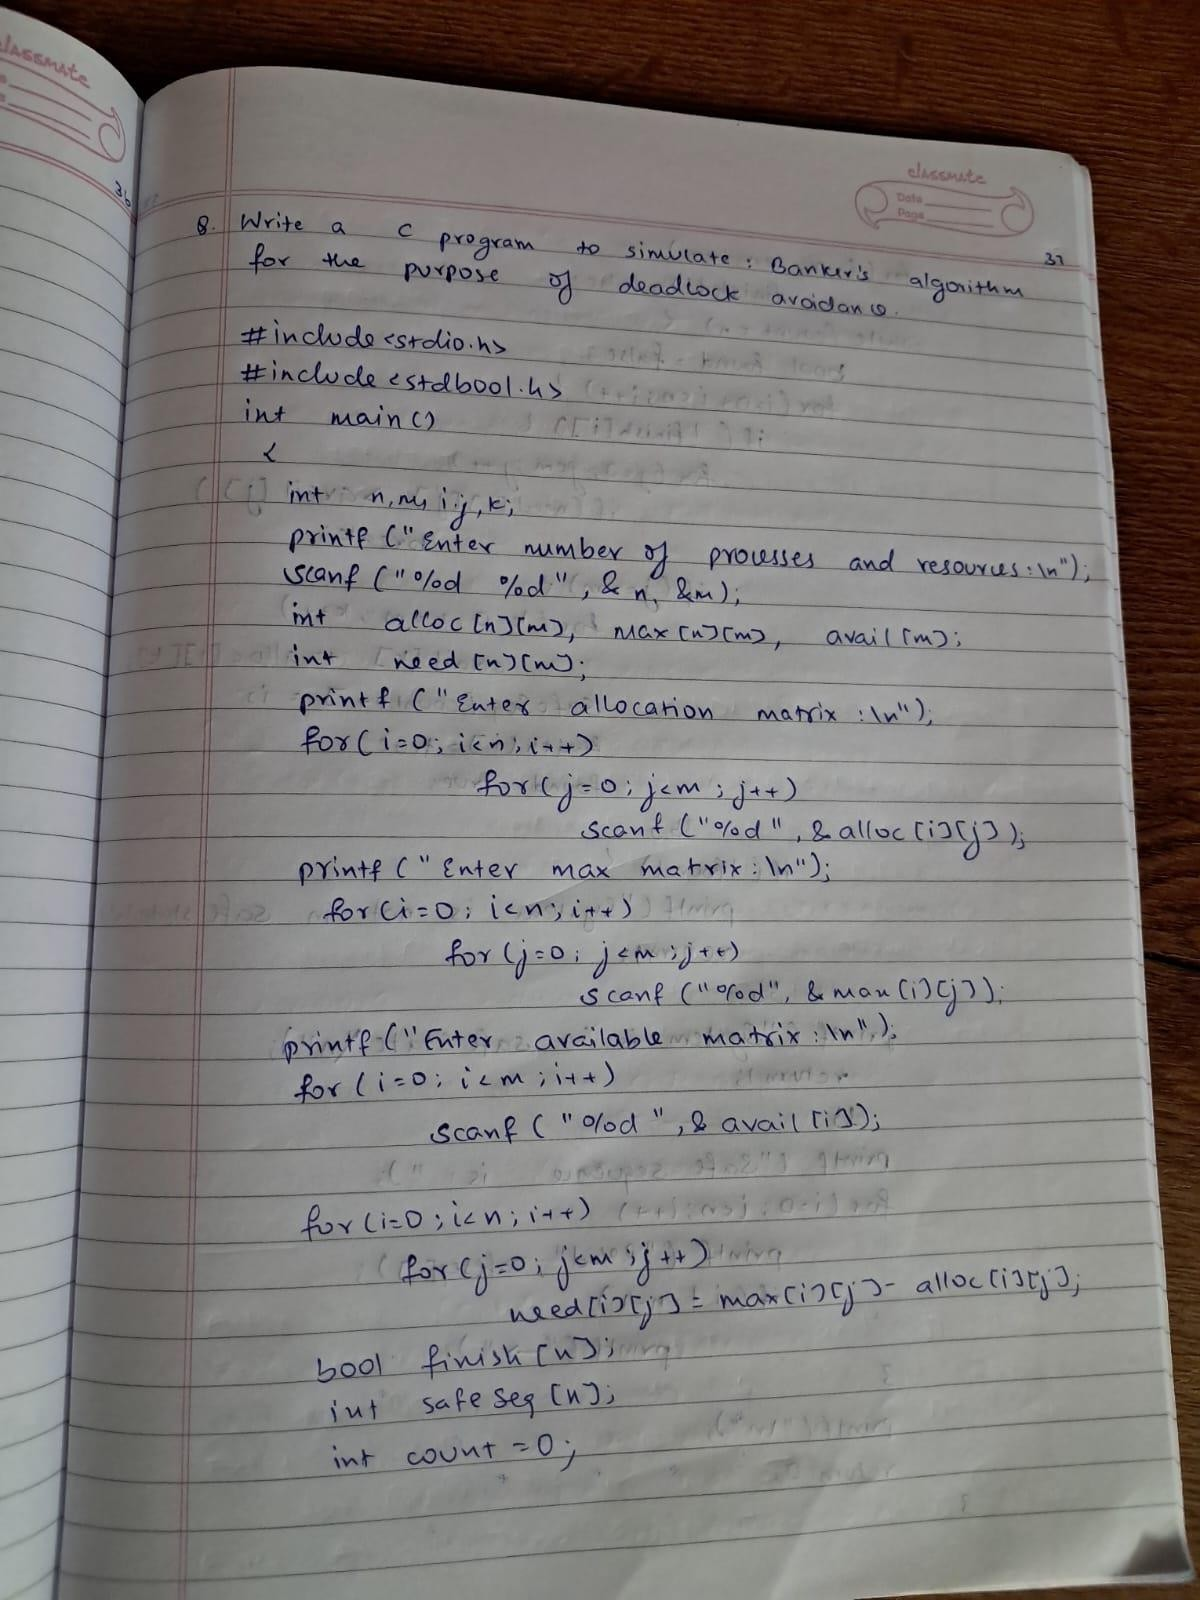 classmate
36
classmate
Date
Page
37
Q. Write a C program to simulate : Banker's algorithm
for the purpose of deadlock avoidance.
#include <stdio.h>
#include <stdbool.h>
int main()
{
int n,m, i,j,k;
printf ("Enter number of processes and resources:\n");
scanf ("%d %d", & n, &m);
int alloc[n][m], max[n][m], avail[m];
int need [n][m];
printf ("Enter allocation matrix :\n");
for(i=0; i<n; i++)
for(j=0; j<m; j++)
scanf ("%d", & alloc[i][j]);
printf ("Enter max matrix:\n");
for(i=0; i<n; i++)
for(j=0; j<m; j++)
scanf ("%d", & max[i][j]);
printf ("Enter available matrix:\n");
for (i=0; i<m; i++)
scanf ("%d", & avail[i]);
for(i=0; i<n; i++)
for(j=0; j<m; j++)
need[i][j] = max[i][j] - alloc[i][j];
bool finish [n];
int safeseq [n];
int count = 0;